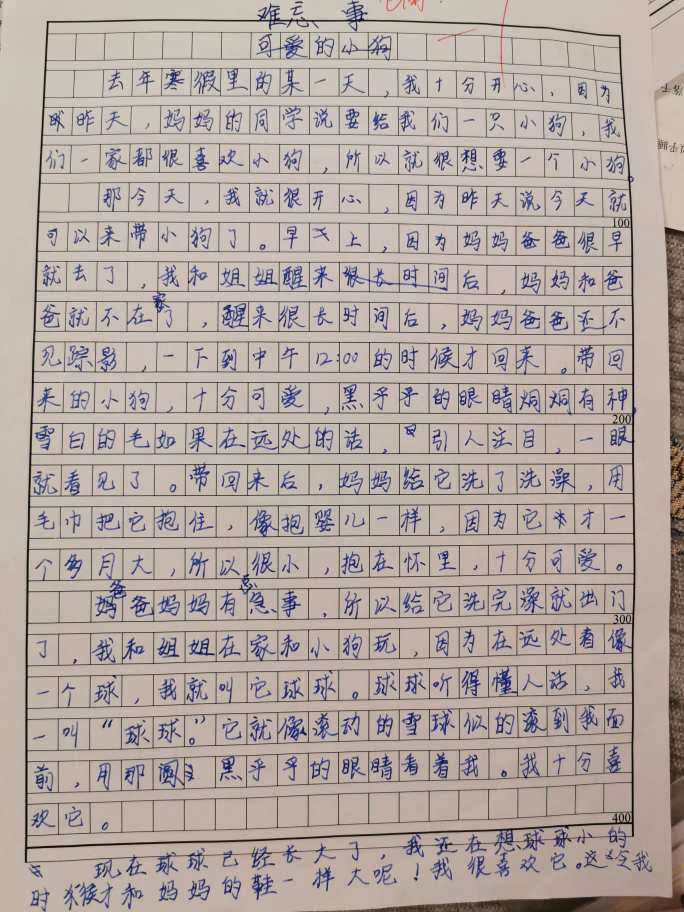 难忘 事
可爱的小狗
去年寒假里的某一天，我十分开心，因为
昨天，妈妈的同学说要给我们一只小狗，我
们一家都很喜欢小狗，所以就很想要一个小狗。
那今天，我就很开心，因为昨天说今天就
100
可以来带小狗了。早上，因为妈妈爸爸很早
就去了，我和姐姐醒来很长时间后，妈妈和爸
爸就不在家了，醒来很长时间后，妈妈爸爸还不
见踪影，一下到中午12:00的时候才回来。带回
来的小狗，十分可爱，黑乎乎的眼睛炯炯有神，
200
雪白的毛如果在远处的话，引人注目，一眼
就看见了。带回来后，妈妈给它洗了洗澡，用
毛巾把它抱住，像抱婴儿一样，因为它才一
个多月大，所以很小，抱在怀里，十分可爱。
爸爸妈妈有急事，所以给它洗完澡就出门
300
了，我和姐姐在家和小狗玩，因为在远处看像
一个球，我就叫它球球。球球听得懂人话，我
一叫“球球。”它就像滚动的雪球似的滚到我面
前，用那 黑乎乎的眼睛看着我。我十分喜
欢它。
400
现在球球已经长大了，我还在想球球小的
时候才和妈妈的鞋一样大呢！我很喜欢它。这令我